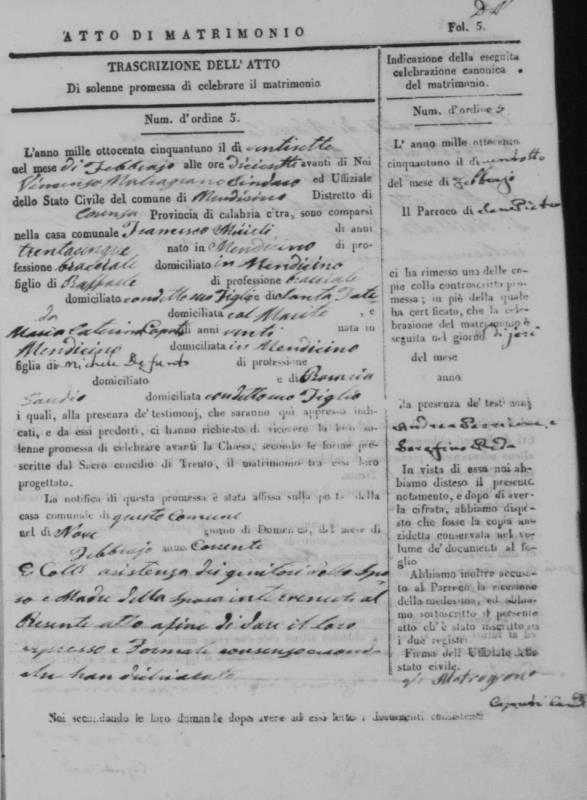 Fol. 5.
ATTO DI MATRIMONIO
TRASCRIZIONE DELL'ATTO
Di solenne promessa di celebrare il matrimonio
Num. d'ordine 5.
L'anno mille ottocento cinquantuno il dì ventisette
nel mese di Febbrajo alle ore diciotto avanti di Noi
Vincenzo Sindaco ed Uffiziale
dello Stato Civile del comune di Mendicino Distretto di
Cosenza Provincia di calabria citra, sono comparsi
nella casa comunale Francesco Miceli di anni
trentacinque nato in Mendicino di pro-
fessione bracciale domiciliato in Mendicino
figlio di Raffaele di professione bracciale
domiciliato con detto suo Figlio e di Santa
domiciliata col Marito, e
Maria Caterina di anni venti nata in
Mendicino domiciliata in Mendicino
figlia di Michele Defunto di professione
domiciliato e di Rosaria
Gaudio domiciliata con detta sua Figlia
i quali, alla presenza de' testimonj, che saranno qui appresso indi-
cati, e da essi prodotti, ci hanno richiesto di ricevere la loro so-
lenne promessa di celebrare avanti la Chiesa, secondo le forme pre-
scritte dal Sacro concilio di Trento, il matrimonio tra essi loro
progettato.
La notifica di questa promessa è stata affissa sulla porta della
casa comunale di questo Comune
nel dì Nove giorno di Domenica, del mese di
Febbrajo anno Corrente
E Colla assistenza dei genitori dello Spo-
so e Madre della Sposa intervenuti al
Presente atto a fine di dare il loro
espresso e Formale consenso
che han dichiarato
Noi secondando le loro domande dopo avere ad essi letto i documenti consistenti
Indicazione della eseguita
celebrazione canonica
del matrimonio.
Num. d'ordine 5
L' anno mille ottocento
cinquantuno il dì ventotto
del mese di Febbrajo
Il Parroco di San Pietro
ci ha rimesso una delle co-
pie colla controscritta pro-
messa; in piè della quale
ha certificato, che la cele-
brazione del matrimonio è
seguita nel giorno di jeri
del mese
anno
la presenza de' testimonj
Andrea Perricone, e
Serafino Reda
In vista di essa noi ab-
biamo disteso il presente
notamento, e dopo di aver-
la cifrata, abbiamo dispo-
sto che fosse la copia an-
zidetta conservata nel vo-
lume de' documenti al fo-
glio
Abbiamo inoltre accusa-
to al Parroco la ricezione
della medesima, ed abbia-
mo sottoscritto il presente
atto ch' è stato inscritto su
i due registri.
Firma dell' Uffiziale dello
stato civile.